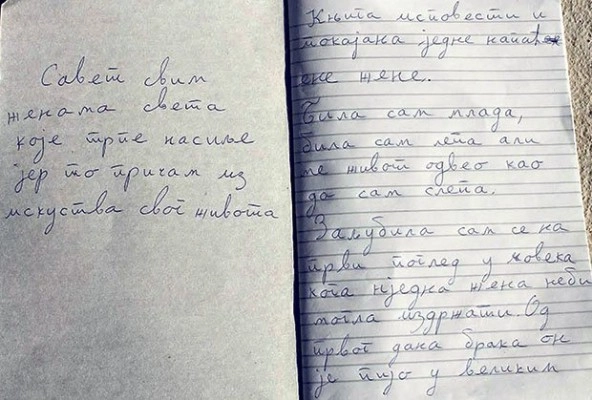 Савет свим
женама света
које трпе насиље
јер то причам из
искуства свог живота
Књига исповести и
покајања једне
ене жене.
Била сам млада,
била сам лепа али
ме живот одвео као
да сам слепа.
Заљубила сам се на
први поглед у човека
кога нједна жена неби
могла издржати. Од
првог дана брака он
је пијо у великим